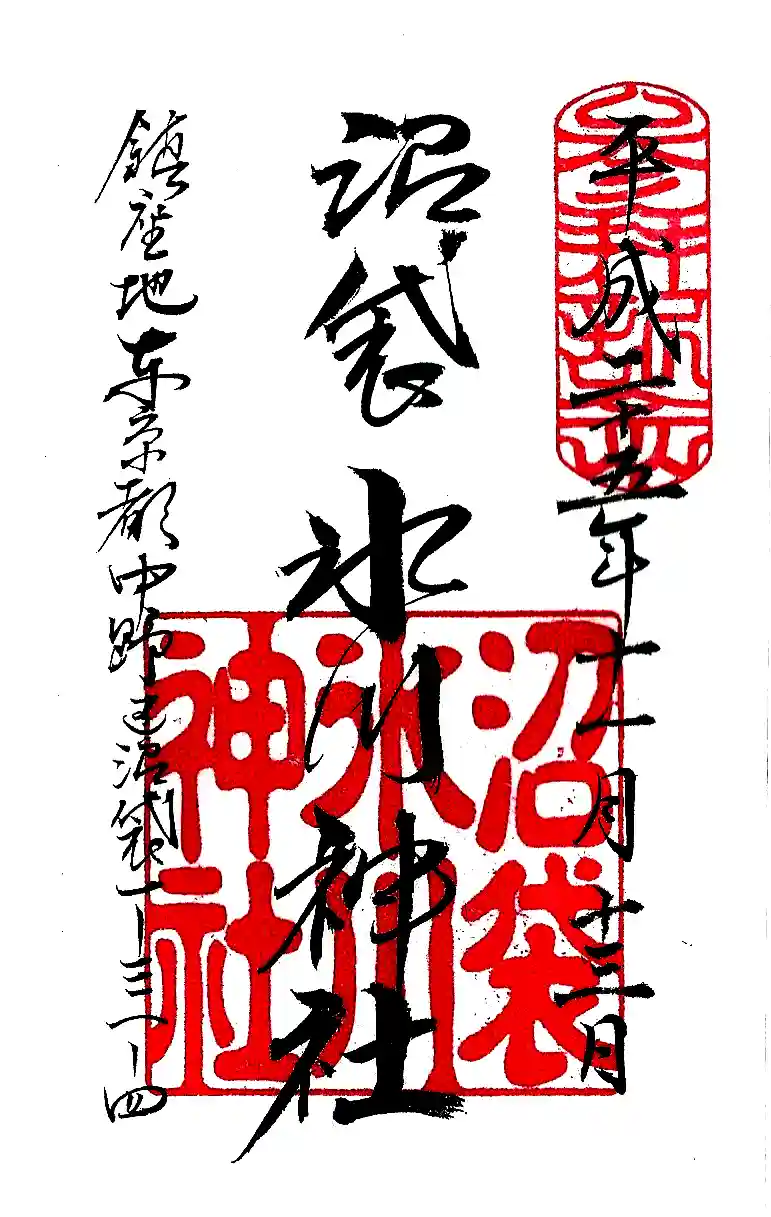 參拜記念
平成二十五年十一月十二日
沼袋氷川神社
沼袋
氷川
神社
鎮座地東京都中野区沼袋一ー三一ー四